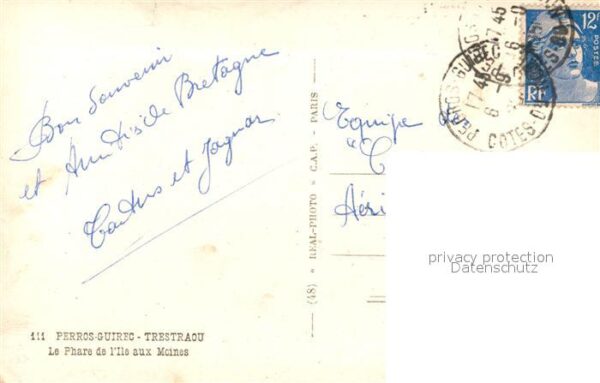 Bon Souvenir
et Amitiés de Bretagne
et Jaguar
Equipe
"C
Aéri
(48) " REAL-PHOTO " C.A.P. - PARIS
111 PERROS-GUIREC - TRESTRAOU
Le Phare de l'Ile aux Moines
12F
POSTES
RF
PERROS GUIREC
17 45
6
COTES DU NORD
privacy protection
Datenschutz